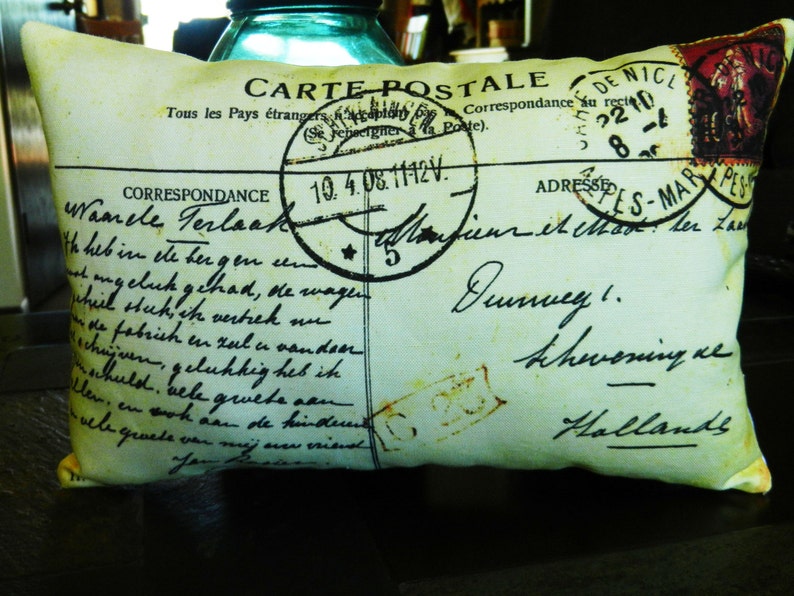 CARTE POSTALE
Tous les Pays étrangers n'acceptent pas la Correspondance au recto
(Se renseigner à la Poste).
SCHEVENINGEN
10.4.08.11-12V.
5
GARE DE NICE
22 10
8 -4
ALPES-MAR
DE NIC
PES-M
CORRESPONDANCE
ADRESSE
Waarde Terlaak
Ik heb in de bergen een
ongeluk gehad, de wagen
geheel stuk, ik vertrek nu
de fabriek en zal u van daar
schrijven, gelukkig heb ik
schuld. vele groete aan
allen, en ook aan de kinderen
vele groete van mij uw vriend
Jan
Monsieur et Mad. ter Laak
Duinweg 1.
Scheveningue
Hollande